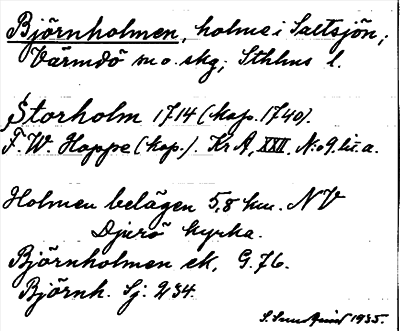 Björnholmen, holme i Saltsjön,
Värmdö sn o. skg, Sthlms l.
Storholm 1714 (kop. 1740).
F. W. Hoppe (kop.). Kr A, XXII. N:o 9. lit. a.
Holmen belägen 5,8 km. NV
Djurö kyrka.
Björnholmen ek, G. 76.
Björnh. Sj. 234.
S. Sundquist 1935.